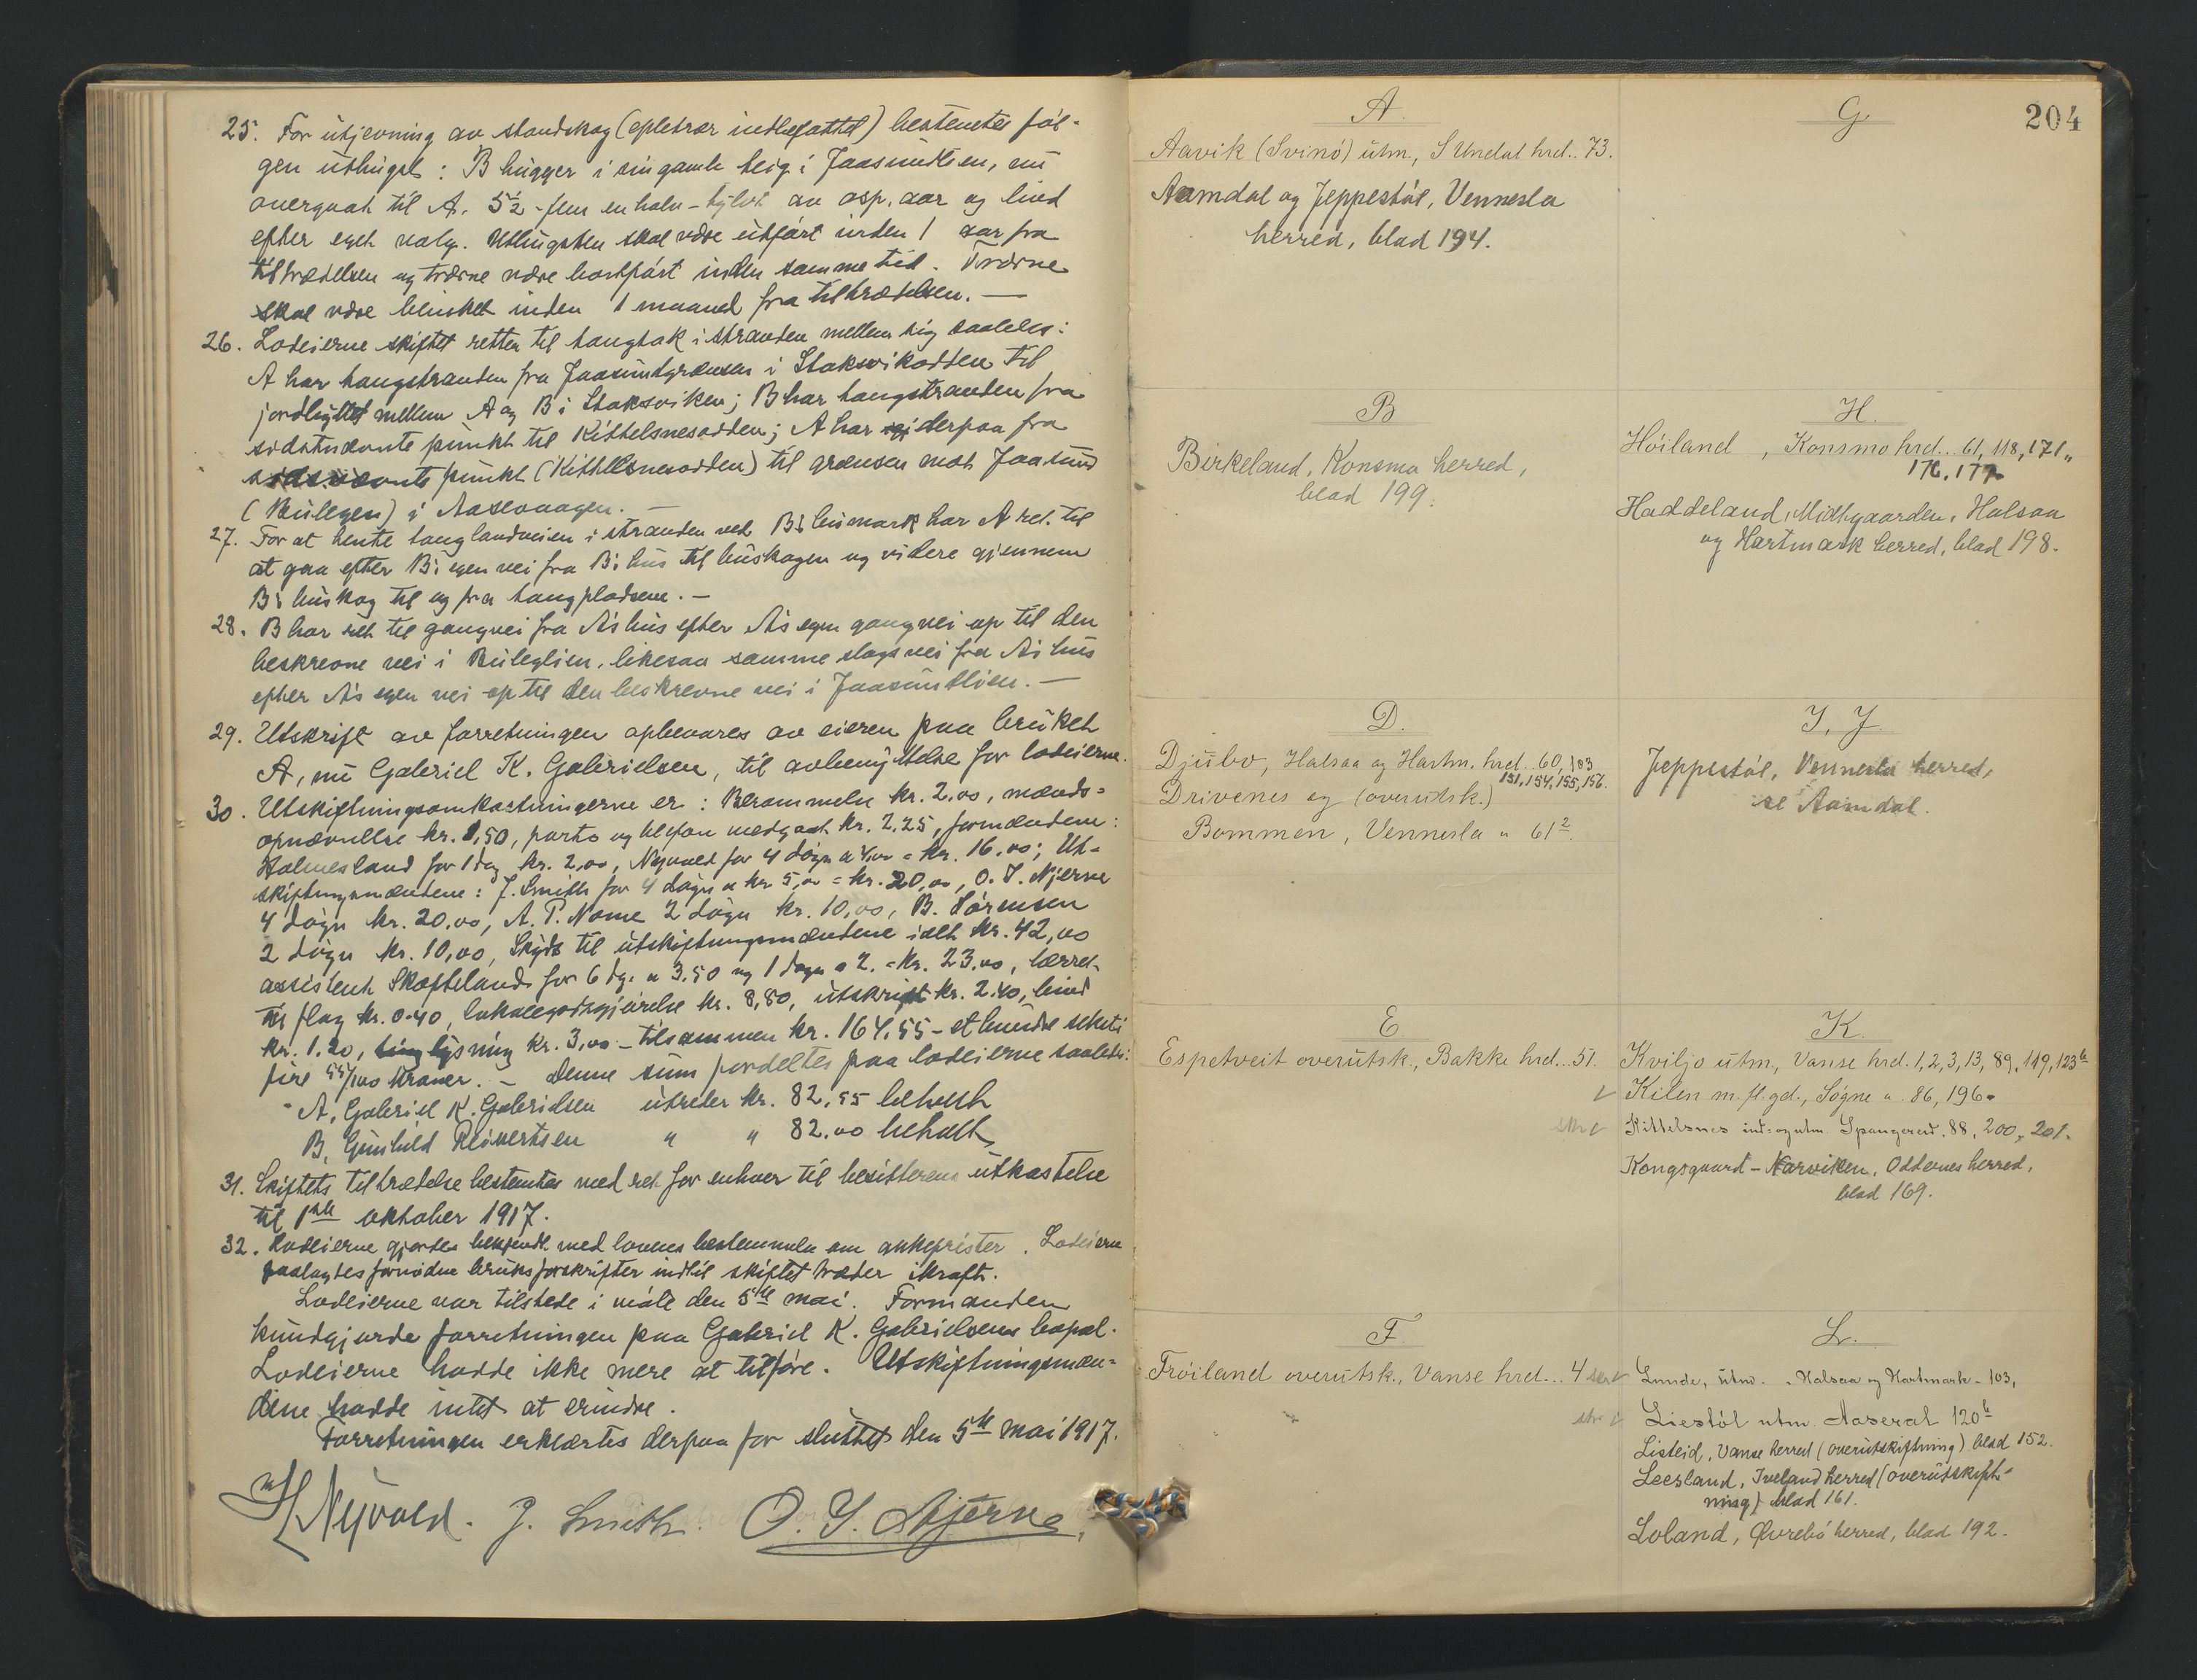 25. For utjevning av standskog (epletrær indbefattet) bestemtes føl-
gen uthugst: B hugger i sin gamle teig i Jaasundlien, nu
overgaat til A. 5½ - fem en halv - tylvt av osp, aar og lind
efter eget valg. Uthugsten skal være utført inden 1 aar fra
tiltrædelsen og trærne være bortført inden samme tid. Trærne
skal være blinket inden 1 maaned fra tiltrædelsen. —
26. Lodeierne skiftet retten til tangtak i stranden mellem sig saaledes:
A har tangstranden fra Jaasundgrænsen i Staksvikodden til
jordbyttet mellem A og B i Staksviken; B har tangstranden fra
sidstnævnte punkt til Kittelsnesodden; A har derpaa fra
sidstnævnte punkt (Kittelsnesodden) til grænsen mot Jaasund
(Bulegen) i Aasevaagen. —
27. For at hente tang landveien i stranden ved B's heimark har A ret til
at gaa efter B's egen vei fra B's hus til huskogen og videre gjennem
B's huskog til og fra tangpladsene. —
28. B har ret til gangvei fra A's hus efter A's egen gangvei op til den
beskrevne vei i Buleglien, likesaa samme slags vei fra A's hus
efter A's egen vei op til den beskrevne vei i Jaasundlien. —
29. Utskrift av forretningen opbevares av eieren paa bruket
A, nu Gabriel K. Gabrielsen, til avbenyttelse for lodeierne.
30. Utskiftningsomkostningerne er: Berammelse kr. 2,00, mænds=
opnævnelse kr. 1,50, porto og telefon medgaat kr. 2.25, formændene:
Holmesland for 1 dag kr. 2,00, Nyvold for 4 døgn a 4,00 = kr. 16.00; Ut-
skiftningsmændene: J. Smith for 4 døgn a kr 5,00 = kr. 20,00, O. T. Njerve
4 døgn kr. 20.00, A. T. Nome 2 døgn kr. 10,00, B. Sørensen
2 døgn kr. 10,00, Skyds til utskiftningsmændene ialt kr. 42,00
assistent Skofteland for 6 dg. a 3.50 og 1 døgn a 2. = kr. 23.00, lærret
til flag kr. 0.40, lokalegodtgjørelse kr. 8,80, utskrift kr. 2.40, bind
kr. 1.20, tinglysning kr. 3,00 - tilsammen kr. 164,55 - et hundre seksti
fire 55/100 kroner. - Denne sum fordeltes paa lodeierne saaledes:
A, Gabriel K. Gabrielsen utreder kr. 82,55 betalt
B, Gunhild Reiertsen " " 82.00 betalt
31. Skiftets tiltrædelse bestemtes med ret for enhver til besitterens utkastelse
til 1ste oktober 1917.
32. Lodeierne gjordes bekjendt med lovens bestemmelse om ankefrister. Lodeierne
paalagtes fornødne bruksforskrifter indtil skiftet træder ikraft.
Lodeierne var tilstede i møte den 5te mai. Formanden
kundgjorde forretningen paa Gabriel K. Gabrielsens bopæl.
Lodeierne hadde ikke mere at tilføre. Utskiftningsmæn=
dene hadde intet at erindre.
Forretningen erklærtes derpaa for sluttet den 5te mai 1917.
Nyvold. J. Smith. O. T. Njerve
204
A.
Aavik (Svinø) utm., S Undal hrd.. 73.
Aamdal og Jeppestøl, Vennesla
herred, blad 194.
B
Birkeland, Konsmo herred,
blad 199.
D.
Djubo, Halsaa og Hartm. hrd. 60, 103
151, 154, 155, 156.
Drivenes og (overutsk.)
Bommen, Vennesla " 61²
E
Espetveit overutsk., Bakke hrd... 51.
F.
Frøiland overutsk., Vanse hrd... 4
G.
H.
Høiland, Konsmo hrd... 61, 118, 171,
176. 177
Haddeland, Midtgaarden, Halsaa
og Hartmark herred, blad 198.
I, J
Jeppestøl, Vennesla herred,
se Aamdal.
K.
Kviljo utm., Vanse hrd. 1, 2, 3, 13, 89, 119, 123b
Kilen m. fl. gd., Søgne " 86, 196.
Kittelsnes ind= og utm. Spangereid. 88, 200, 201.
Kongsgaard - Narviken, Oddernes herred,
blad 169.
L.
Lunde, utm. Halsaa og Hartmark - 103,
Liestøl utm. Aaseral 120b
Listeid, Vanse herred (overutskiftning) blad 152.
Leesland, Iveland herred (overutskift-
ning) blad 161.
Loland, Øvrebø herred, blad 192.